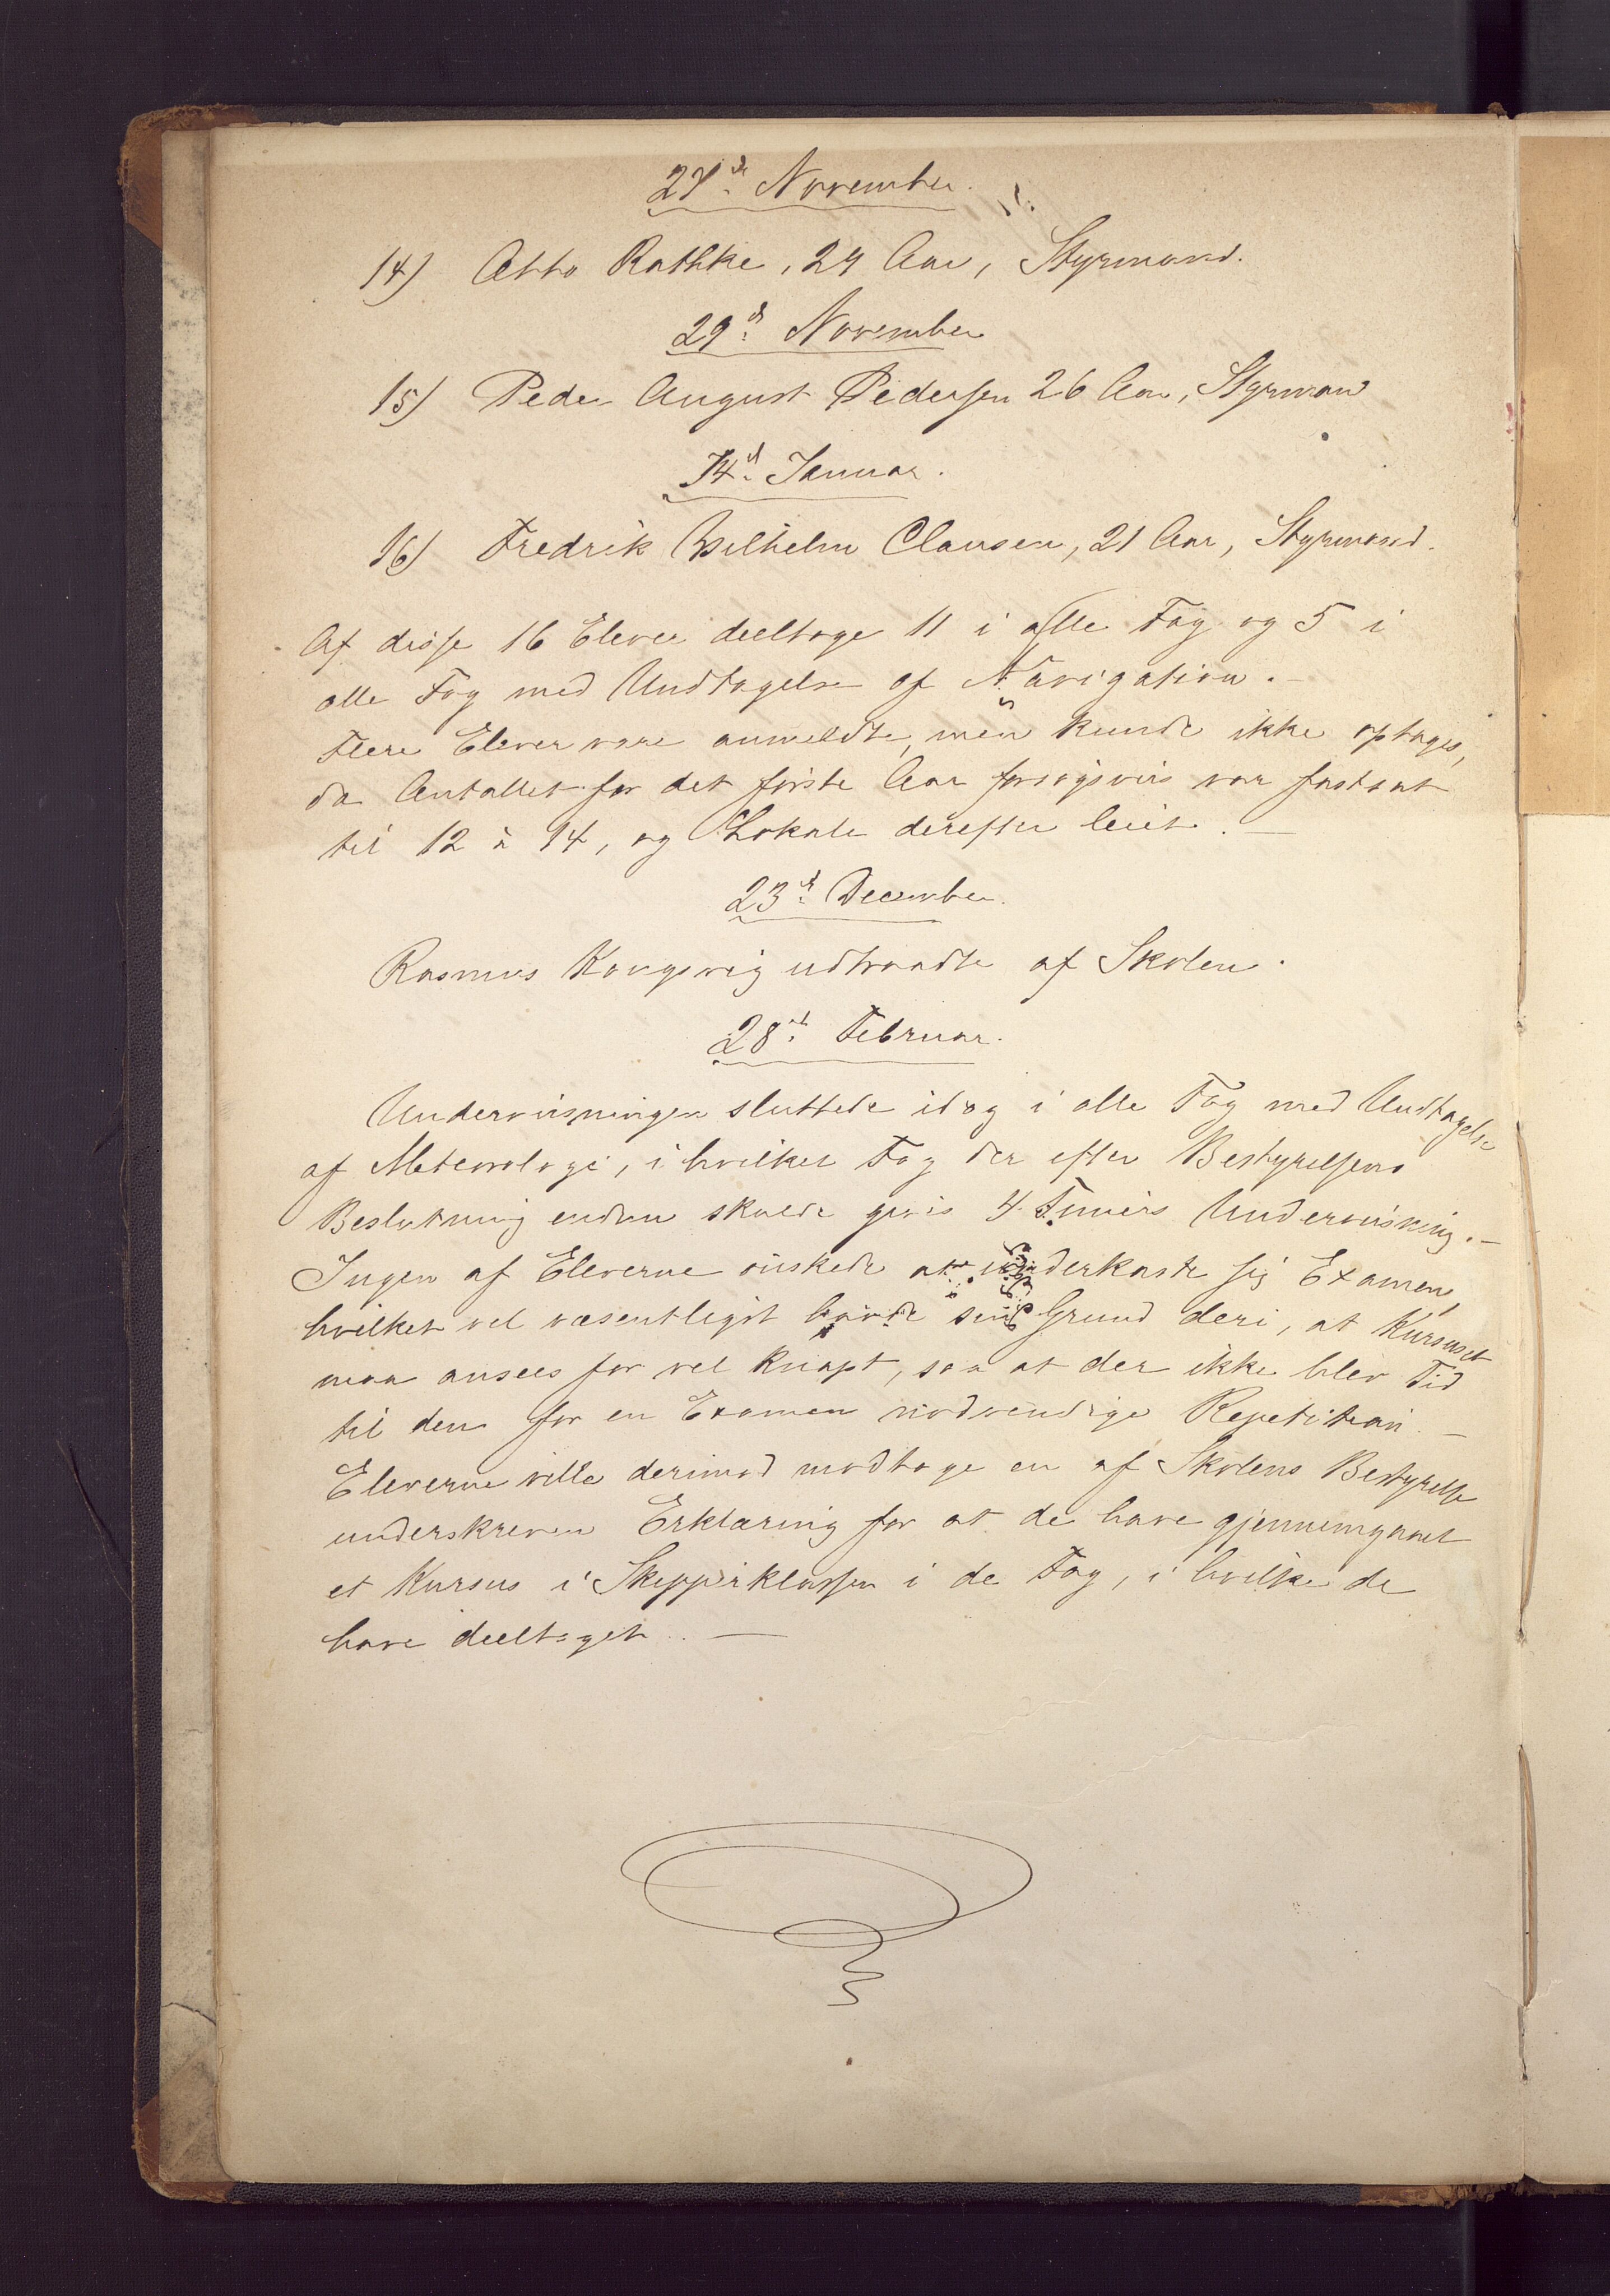 27de November.
14) Otto Rathke, 24 Aar, Styrmand.
29de November
15) Peder August Pedersen 26 Aar, Styrman
14de Januar.
16) Fredrik Wilhelm Clausen, 21 Aar, Styrmand.
Af disse 16 Elever deeltoge 11 i alle Fag og 5 i
alle Fag med Undtagelse af Navigation.—
Flere Elever vare anmeldte, men kunde ikke optages,
da Antallet for det første Aar forsøgsvis var fastsat
til 12 à 14, og Lokale derefter leiet.—
23de December.
Rasmus Kongsvig udtraadte af Skolen.
28de Februar.
Undervisningen sluttede idag i alle Fag med Undtagelse
af Meteorologi, i hvilket Fag der efter Bestyrelsens
Beslutning endnu skulde gives 4 Timers Undervisning.—
Ingen af Eleverne ønskede at underkaste sig Examen,
hvilket vel væsentligst havde sin Grund deri, at Kursuset
maa ansees for vel knapt, saa at der ikke blev Tid
til den for en Examen nødvendige Repetition.—
Eleverne ville derimod modtage en af Skolens Bestyrelse
underskreven Erklæring for at de have gjennemgaaet
et Kursus i Skipperklassen i de Fag, i hvilke de
have deeltaget.—